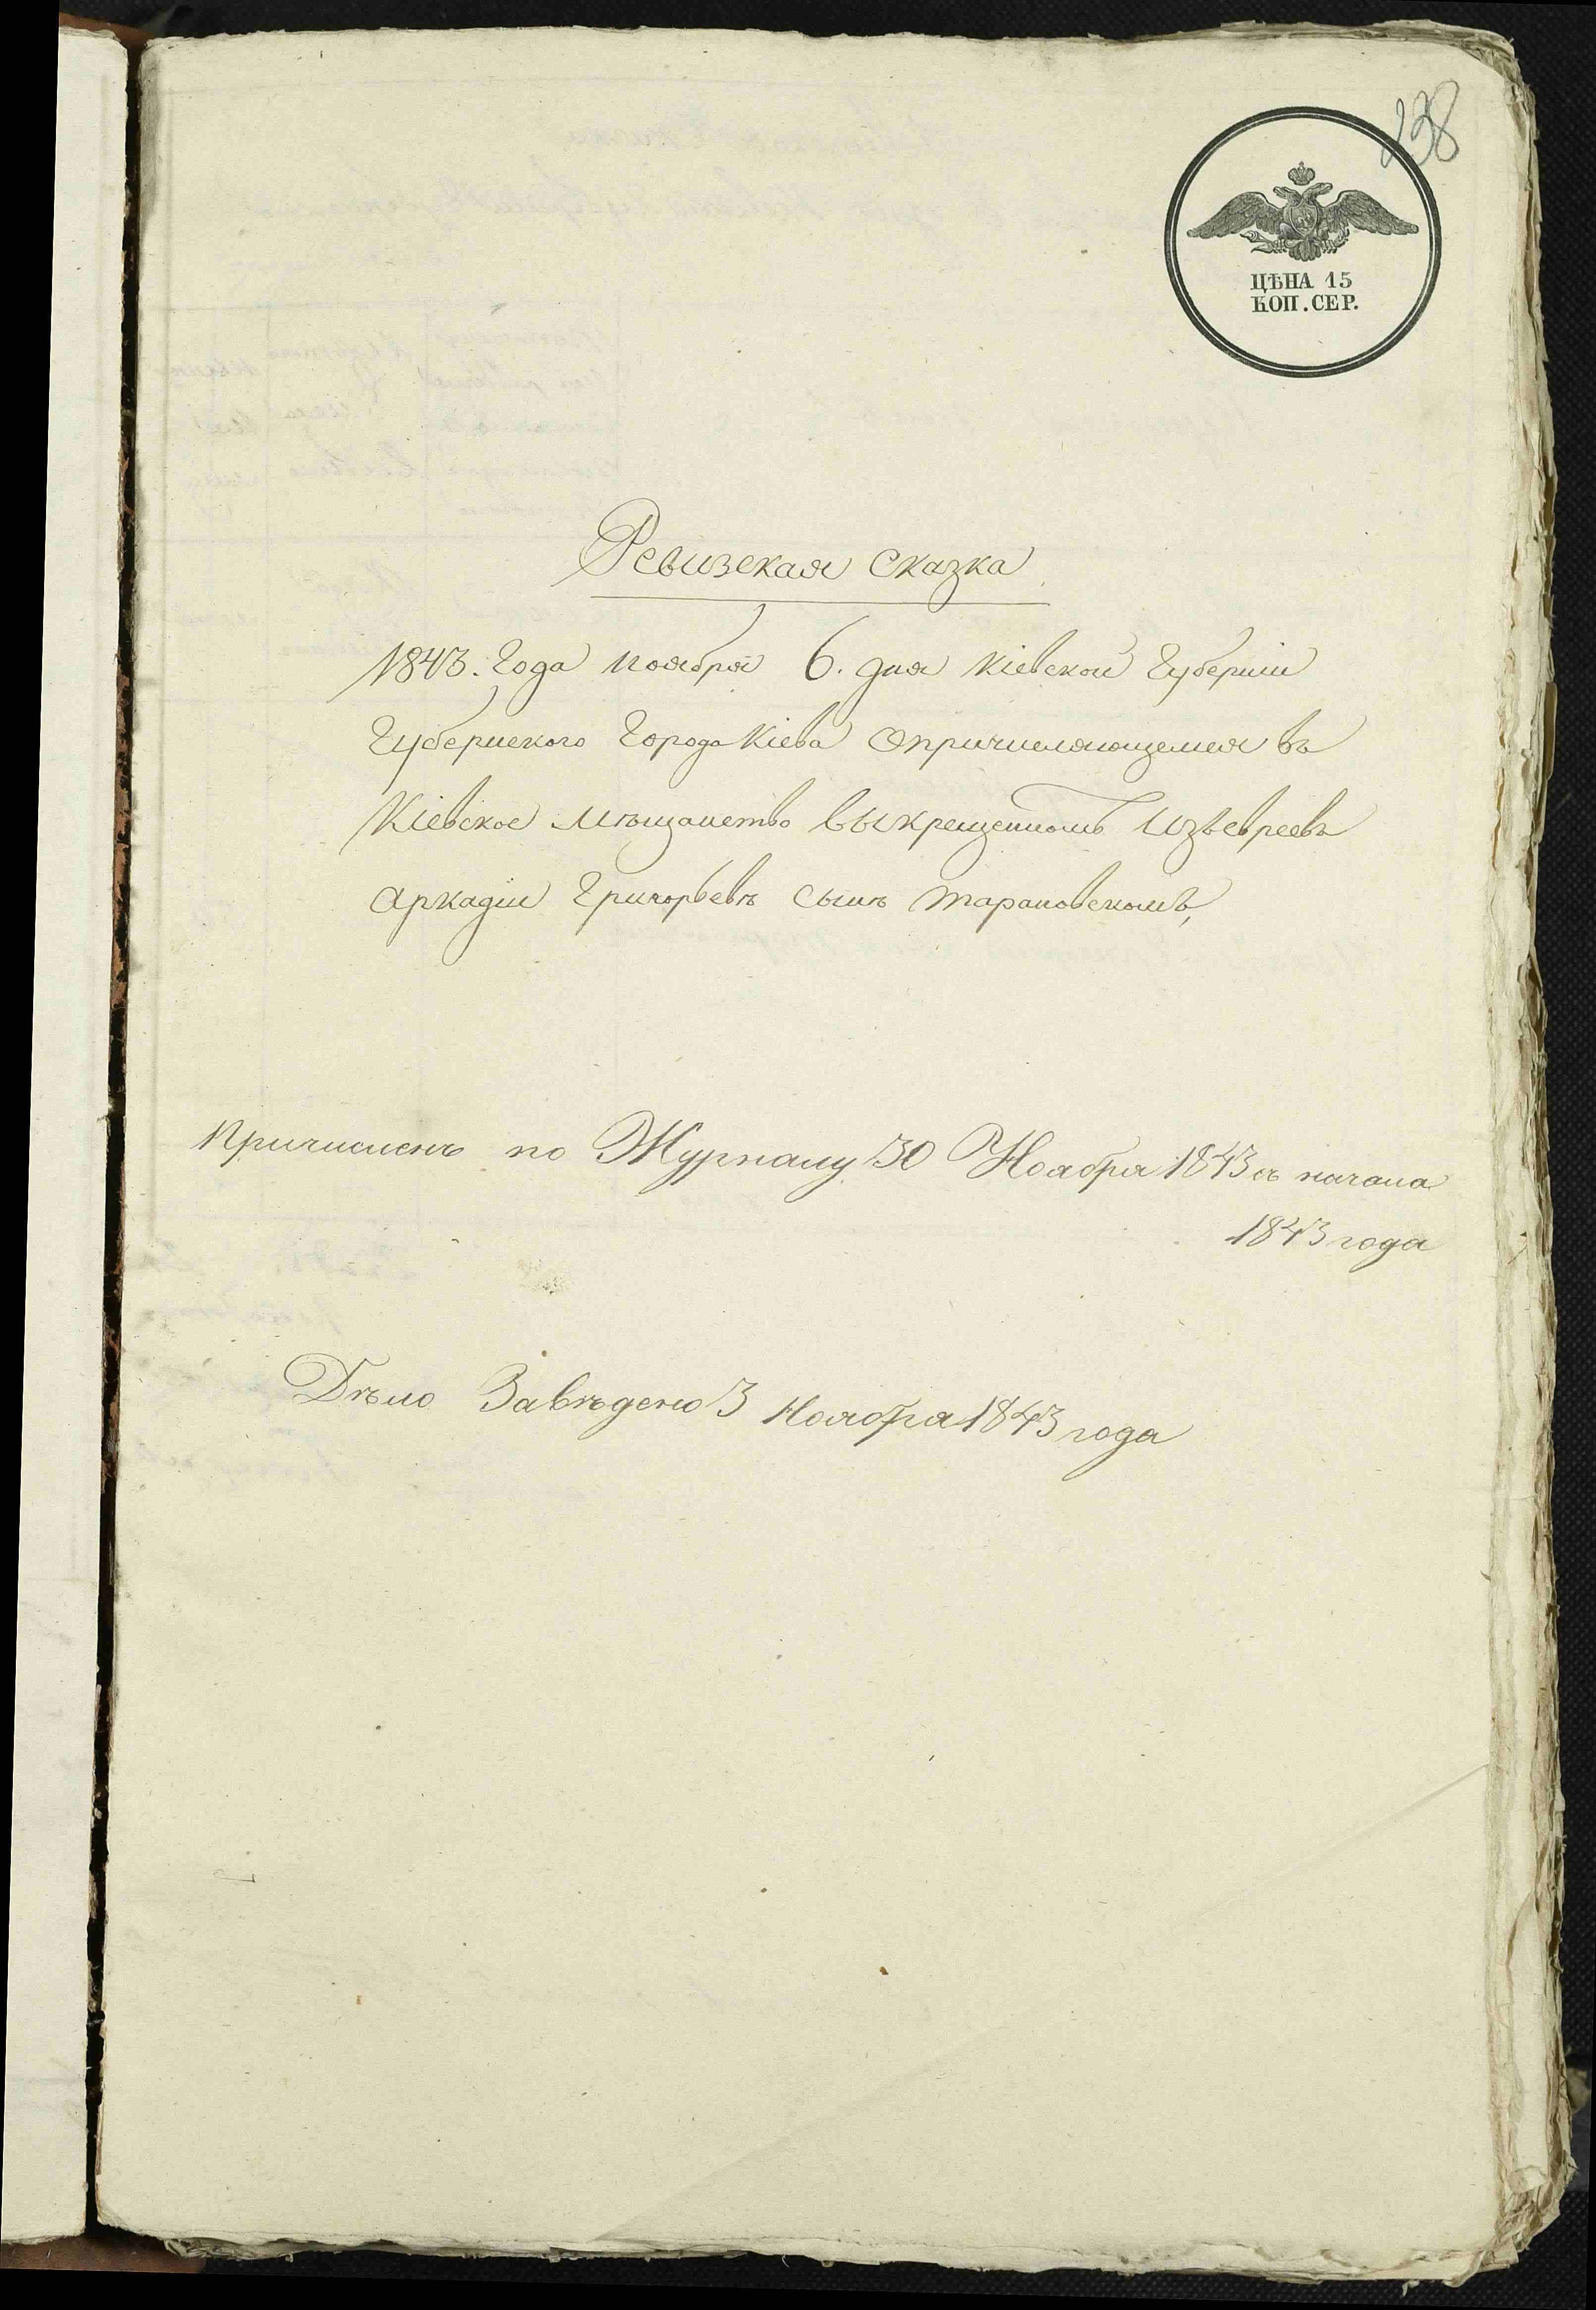 238
ЦѢНА 15
КОП. СЕР.
Ревизская сказка
1843. Года ноября 6. дня Кіевской Губерніи
Губернского Города Кіева опричисляющемся въ
Кіевское мѣщанство выкрещенномъ изъевреевъ
Аркадіи Григорьевъ сынъ Тарановскомъ,
Причисленъ по Журналу 30 Ноября 1843 съ начала
1843 года
Дѣло Завѣдено 3 Ноября 1843 года